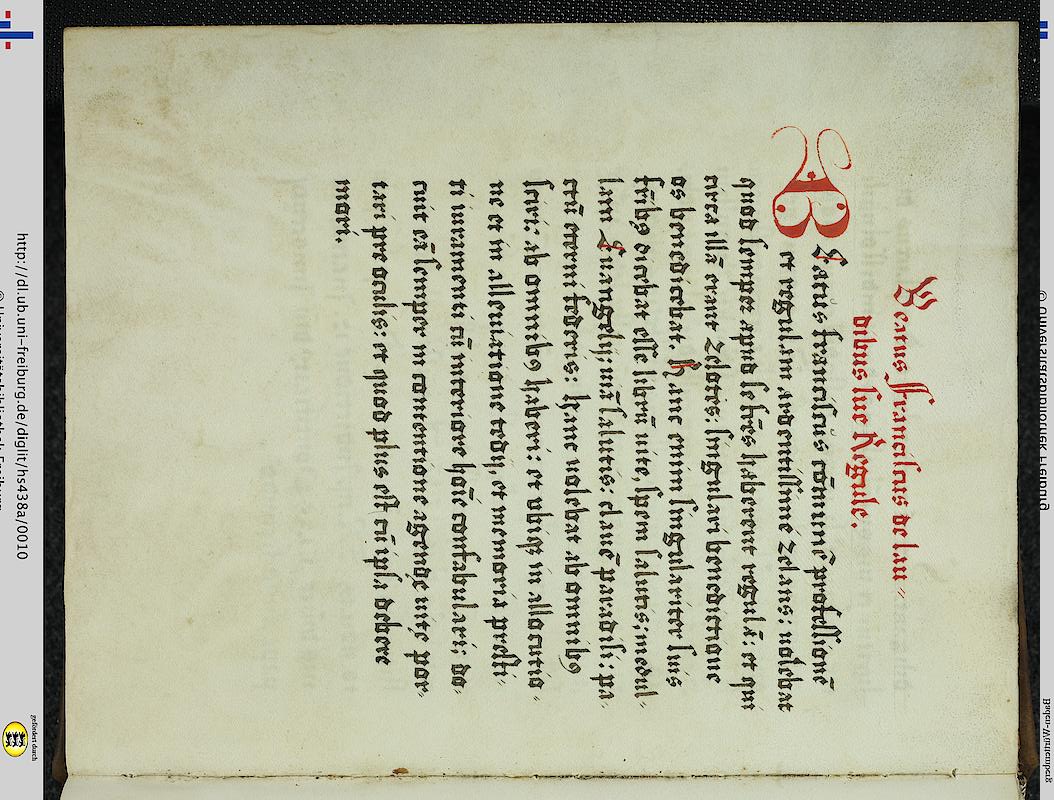 Beatus ffranciscus de lau-
dibus sue Regule.
BEatus franciscus cōmunē professionē
et regulam ardentissime zelans: uolebat
quod semper apud se frēs haberent regulā: et qui
circa illā erant zelotes: singulari benedictione
os benedicebat. Hanc enim singulariter suis
frībꝰ dicebat esse librū uite, spem salutis: medul-
lam Euangelij: uiā salutis: clauē paradisi: pa-
ctū eterni federis: hanc uolebat ab omnibꝰ
sciri: ab omnibꝰ haberi: et vbiqꝫ in allocutio-
ne et in alleuiatione tedij, et memoria presti-
ti iuramenti cū interiore hoīe confabulari: do-
cuit eā semper in contentione agende uitę por-
tari pre oculis: et quod plus est cū ipsa debere
mori.
http://dl.ub.uni-freiburg.de/diglit/hs438a/0010
gefördert durch